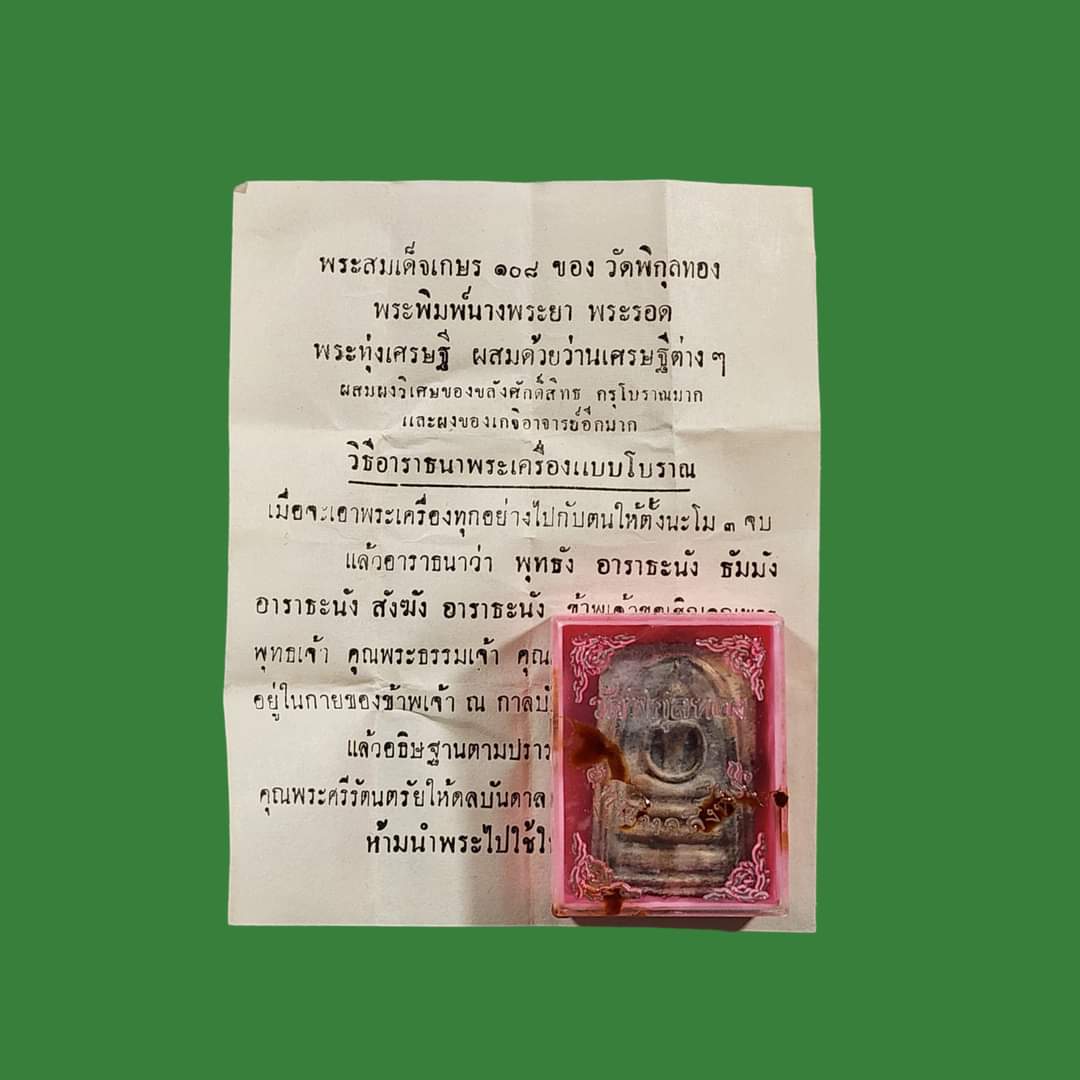 พระสมเด็จเกษร ๑๐๘ ของ วัดพิกุลทอง
พระพิมพ์นางพระยา พระรอด
พระทุ่งเศรษฐี ผสมด้วยว่านเศรษฐีต่าง ๆ
ผสมผงวิเศษของขลังศักดิ์สิทธ กรุโบราณมาก
และผงของเกจิอาจารย์อีกมาก
วิธีอาราธนาพระเครื่องแบบโบราณ
เมื่อจะเอาพระเครื่องทุกอย่างไปกับตนให้ตั้งนะโม ๓ จบ
แล้วอาราธนาว่า พุทธัง อาราธะนัง ธัมมัง
อาราธะนัง สังฆัง อาราธะนัง
พุทธเจ้า คุณพระธรรมเจ้า คุณ
อยู่ในกายของข้าพเจ้า ณ กาล
แล้วอธิษฐานตาม
คุณพระศรีรัตนตรัยให้ดลบันดาล
ห้ามนำพระไปใช้
วัดพิกุลทอง